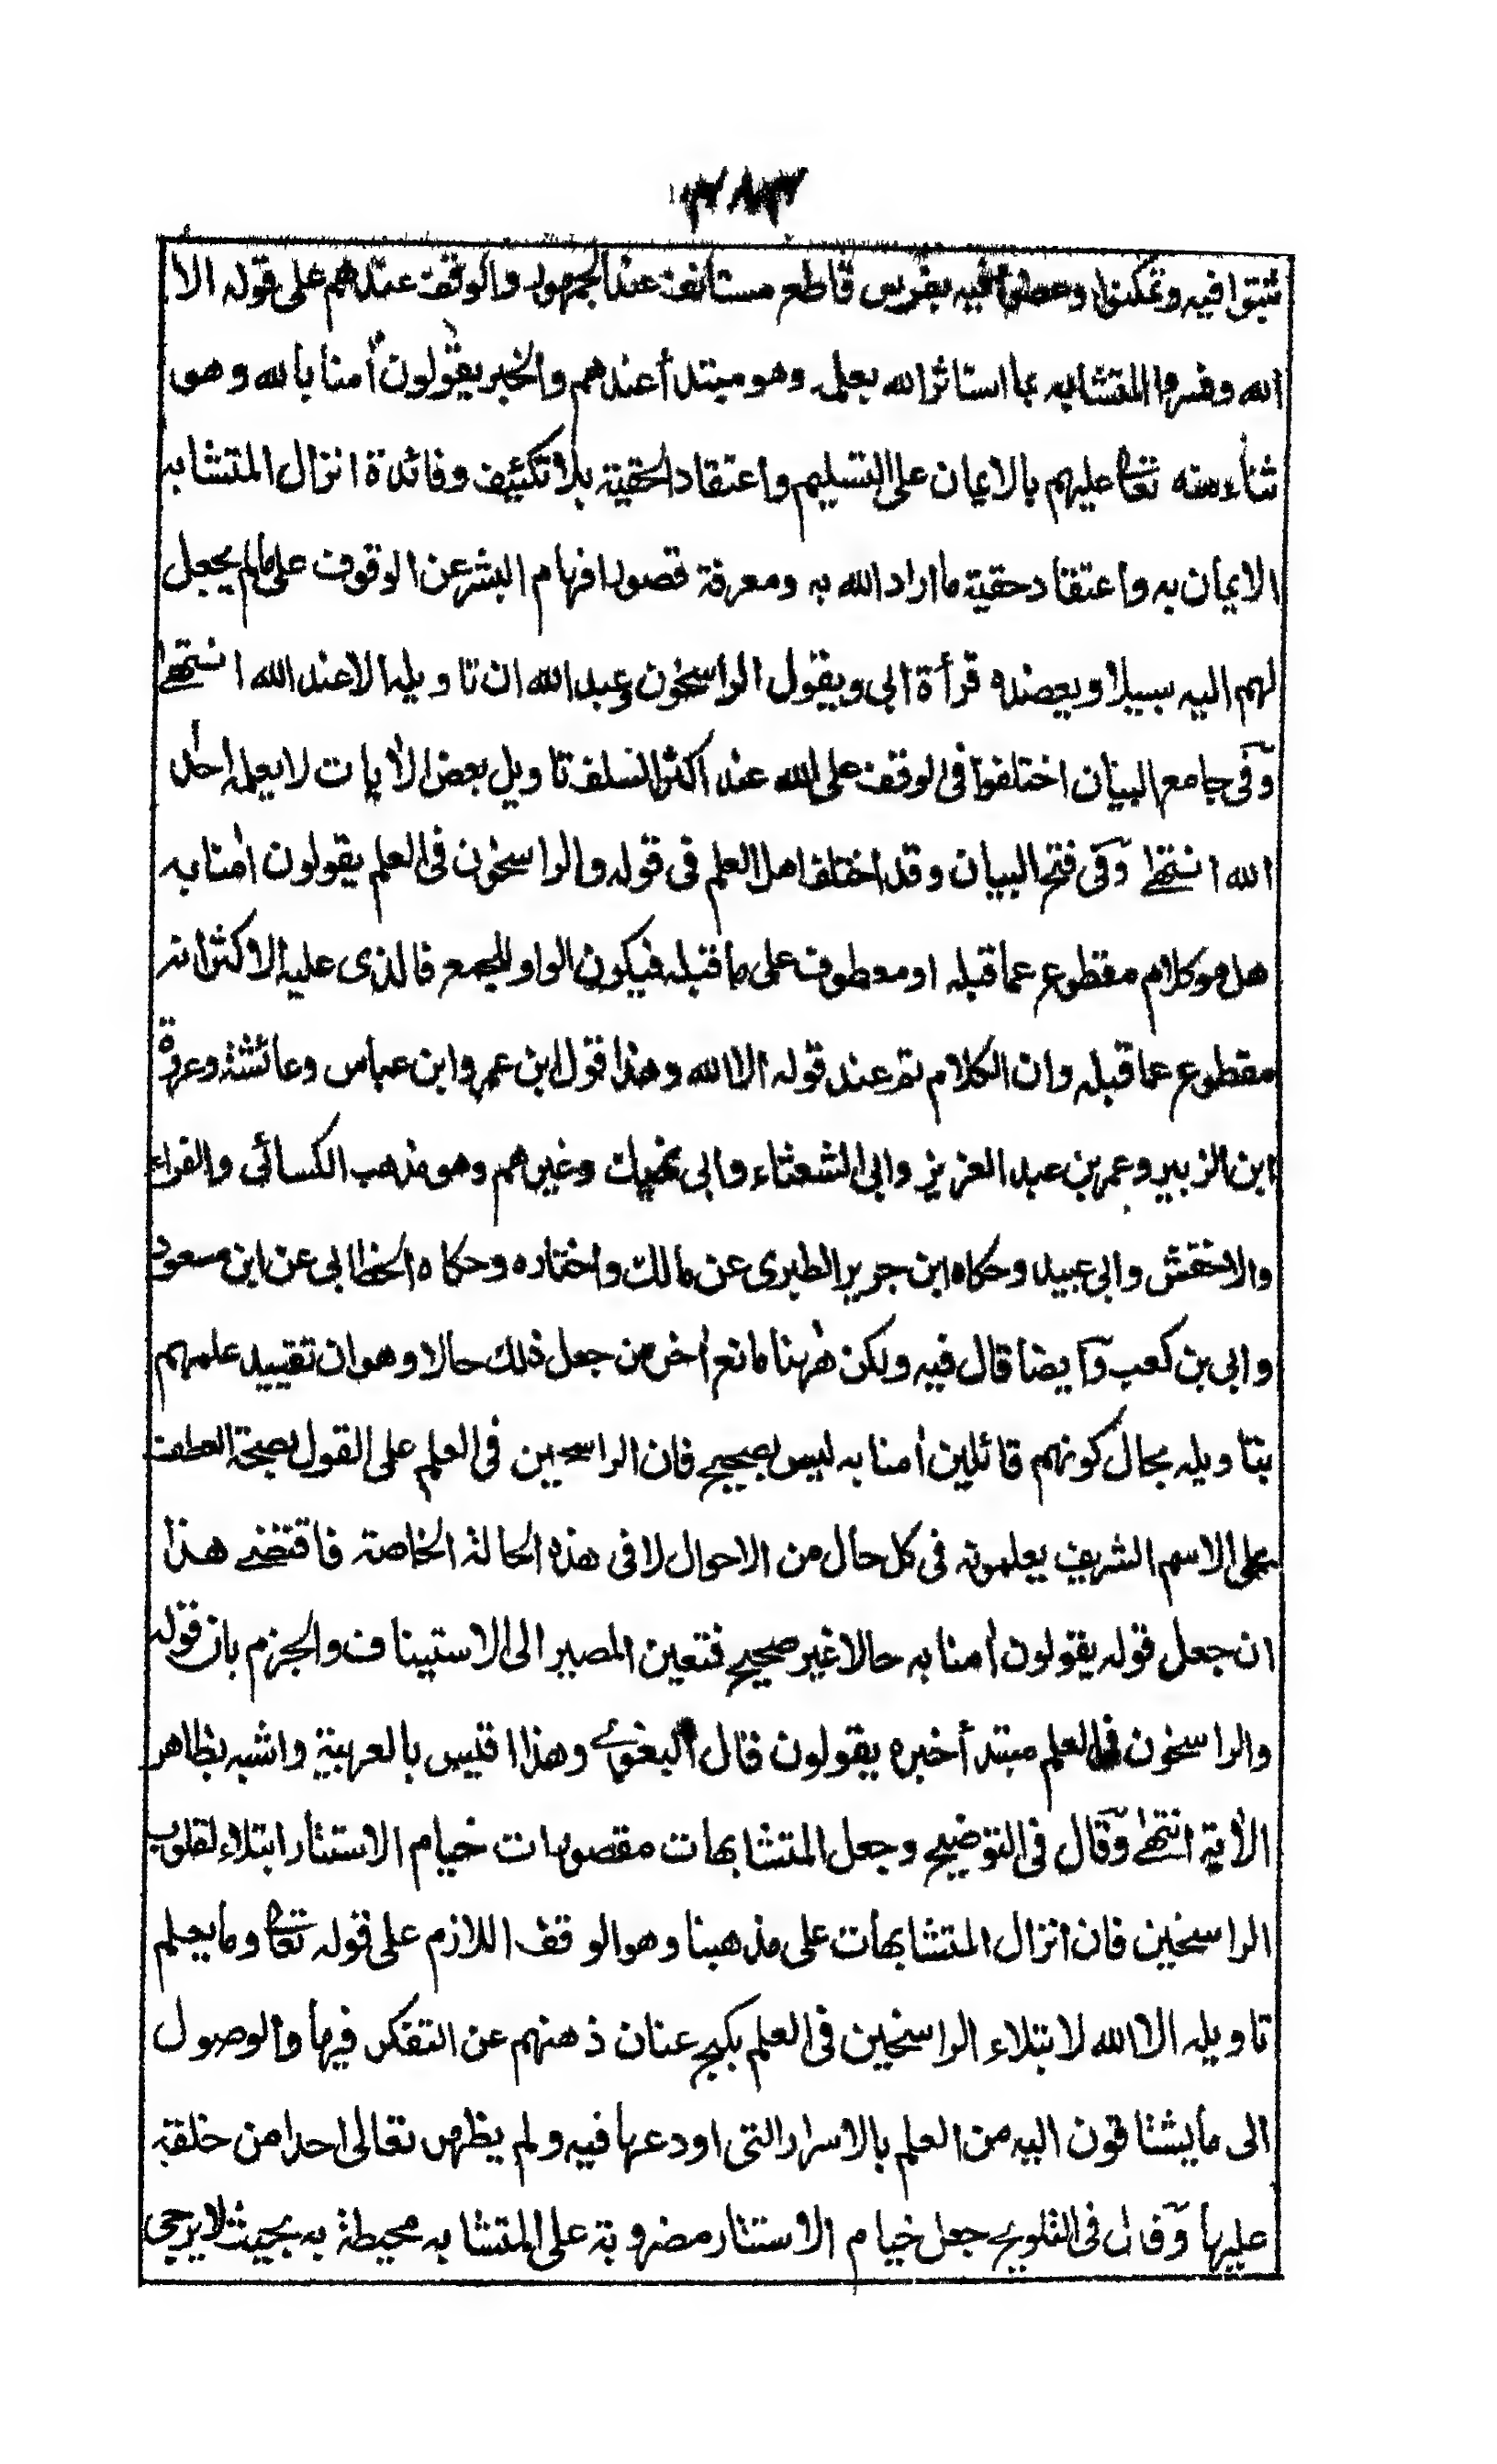 ثبتوا فيه وتمكنوا وعضوا فيه بضرس قاطع مستانف عند الجمهور والوقف عندهم على قوله الا
الله وفسروا المتشابه بما استاثر الله بعلمه وهو مبتدأ عندهم والخبر يقولون أمنا بالله وهو
ثناء منه تعالى عليهم بالايمان على التسليم واعتقاد الحقية بلا تكئيف وفائدة انزال المتشابه
الايمان به واعتقاد حقية ما اراد الله به ومعرفة قصور افهام البشر عن الوقوف على مالم يجعل
لهم اليه سبيلا ويعضده قرأة ابى ويقول الراسخون وعبد الله ان تاويله الا عند الله انتهى
وفى جامع البيان اختلفوا فى الوقف على الله عند اكثر السلف تاويل بعض الأيات لا يعلمه احد الا
الله انتهى وفى فتح البيان وقد اختلف اهل العلم فى قوله والراسخون فى العلم يقولون امنا به
هل هو كلام مقطوع عما قبله او معطوف على ما قبله فيكون الواو للجمع فالذى عليه الاكثر انه
مقطوع عما قبله وان الكلام تم عند قوله الا الله وهذا قول ابن عمر وابن عباس وعائشة وعروة
ابن الزبير وعمر بن عبد العزيز وابى الشعثاء وابى نهيك وغيرهم وهو مذهب الكسائى والفراء
والاخفش وابى عبيد وحكاه ابن جرير الطبرى عن مالك واختاره وحكاه الخطابى عن ابن مسعود
وابى بن كعب وأيضا قال فيه ولكن ههنا مانع أخر من جعل ذلك حالا وهو ان تقييد علمهم
بتاويله بحال كونهم قائلين أمنا به ليس بصحيح فان الراسخين فى العلم على القول بصحة العطف
على الاسم الشريف يعلمونه فى كل حال من الاحوال لا فى هذه الحالة الخاصة فاقتضى هذا
ان جعل قوله يقولون أمنا به حالا غير صحيح فتعين المصير الى الاستيناف والجزم بان قوله
والراسخون فى العلم مبتدأ خبره يقولون قال البغوى وهذا اقيس بالعربية واشبه بظاهر
الأية انتهى وقال فى التوضيح وجعل المتشابهات مقصورات خيام الاستتار ابتلاء لقلوب
الراسخين فان انزال المتشابهات على مذهبنا وهو الوقف اللازم على قوله تعالى وما يعلم
تاويله الا الله لابتلاء الراسخين فى العلم بكبح عنان ذهنهم عن التفكر فيها والوصول
الى ما يشتاقون اليه من العلم بالاسرار التى اودعها فيه ولم يظهر تعالى احدا من خلقة
عليها وقال فى التلويح جعل خيام الاستتار مضروبة على المتشابه محيطة به بحيث لا يرجى